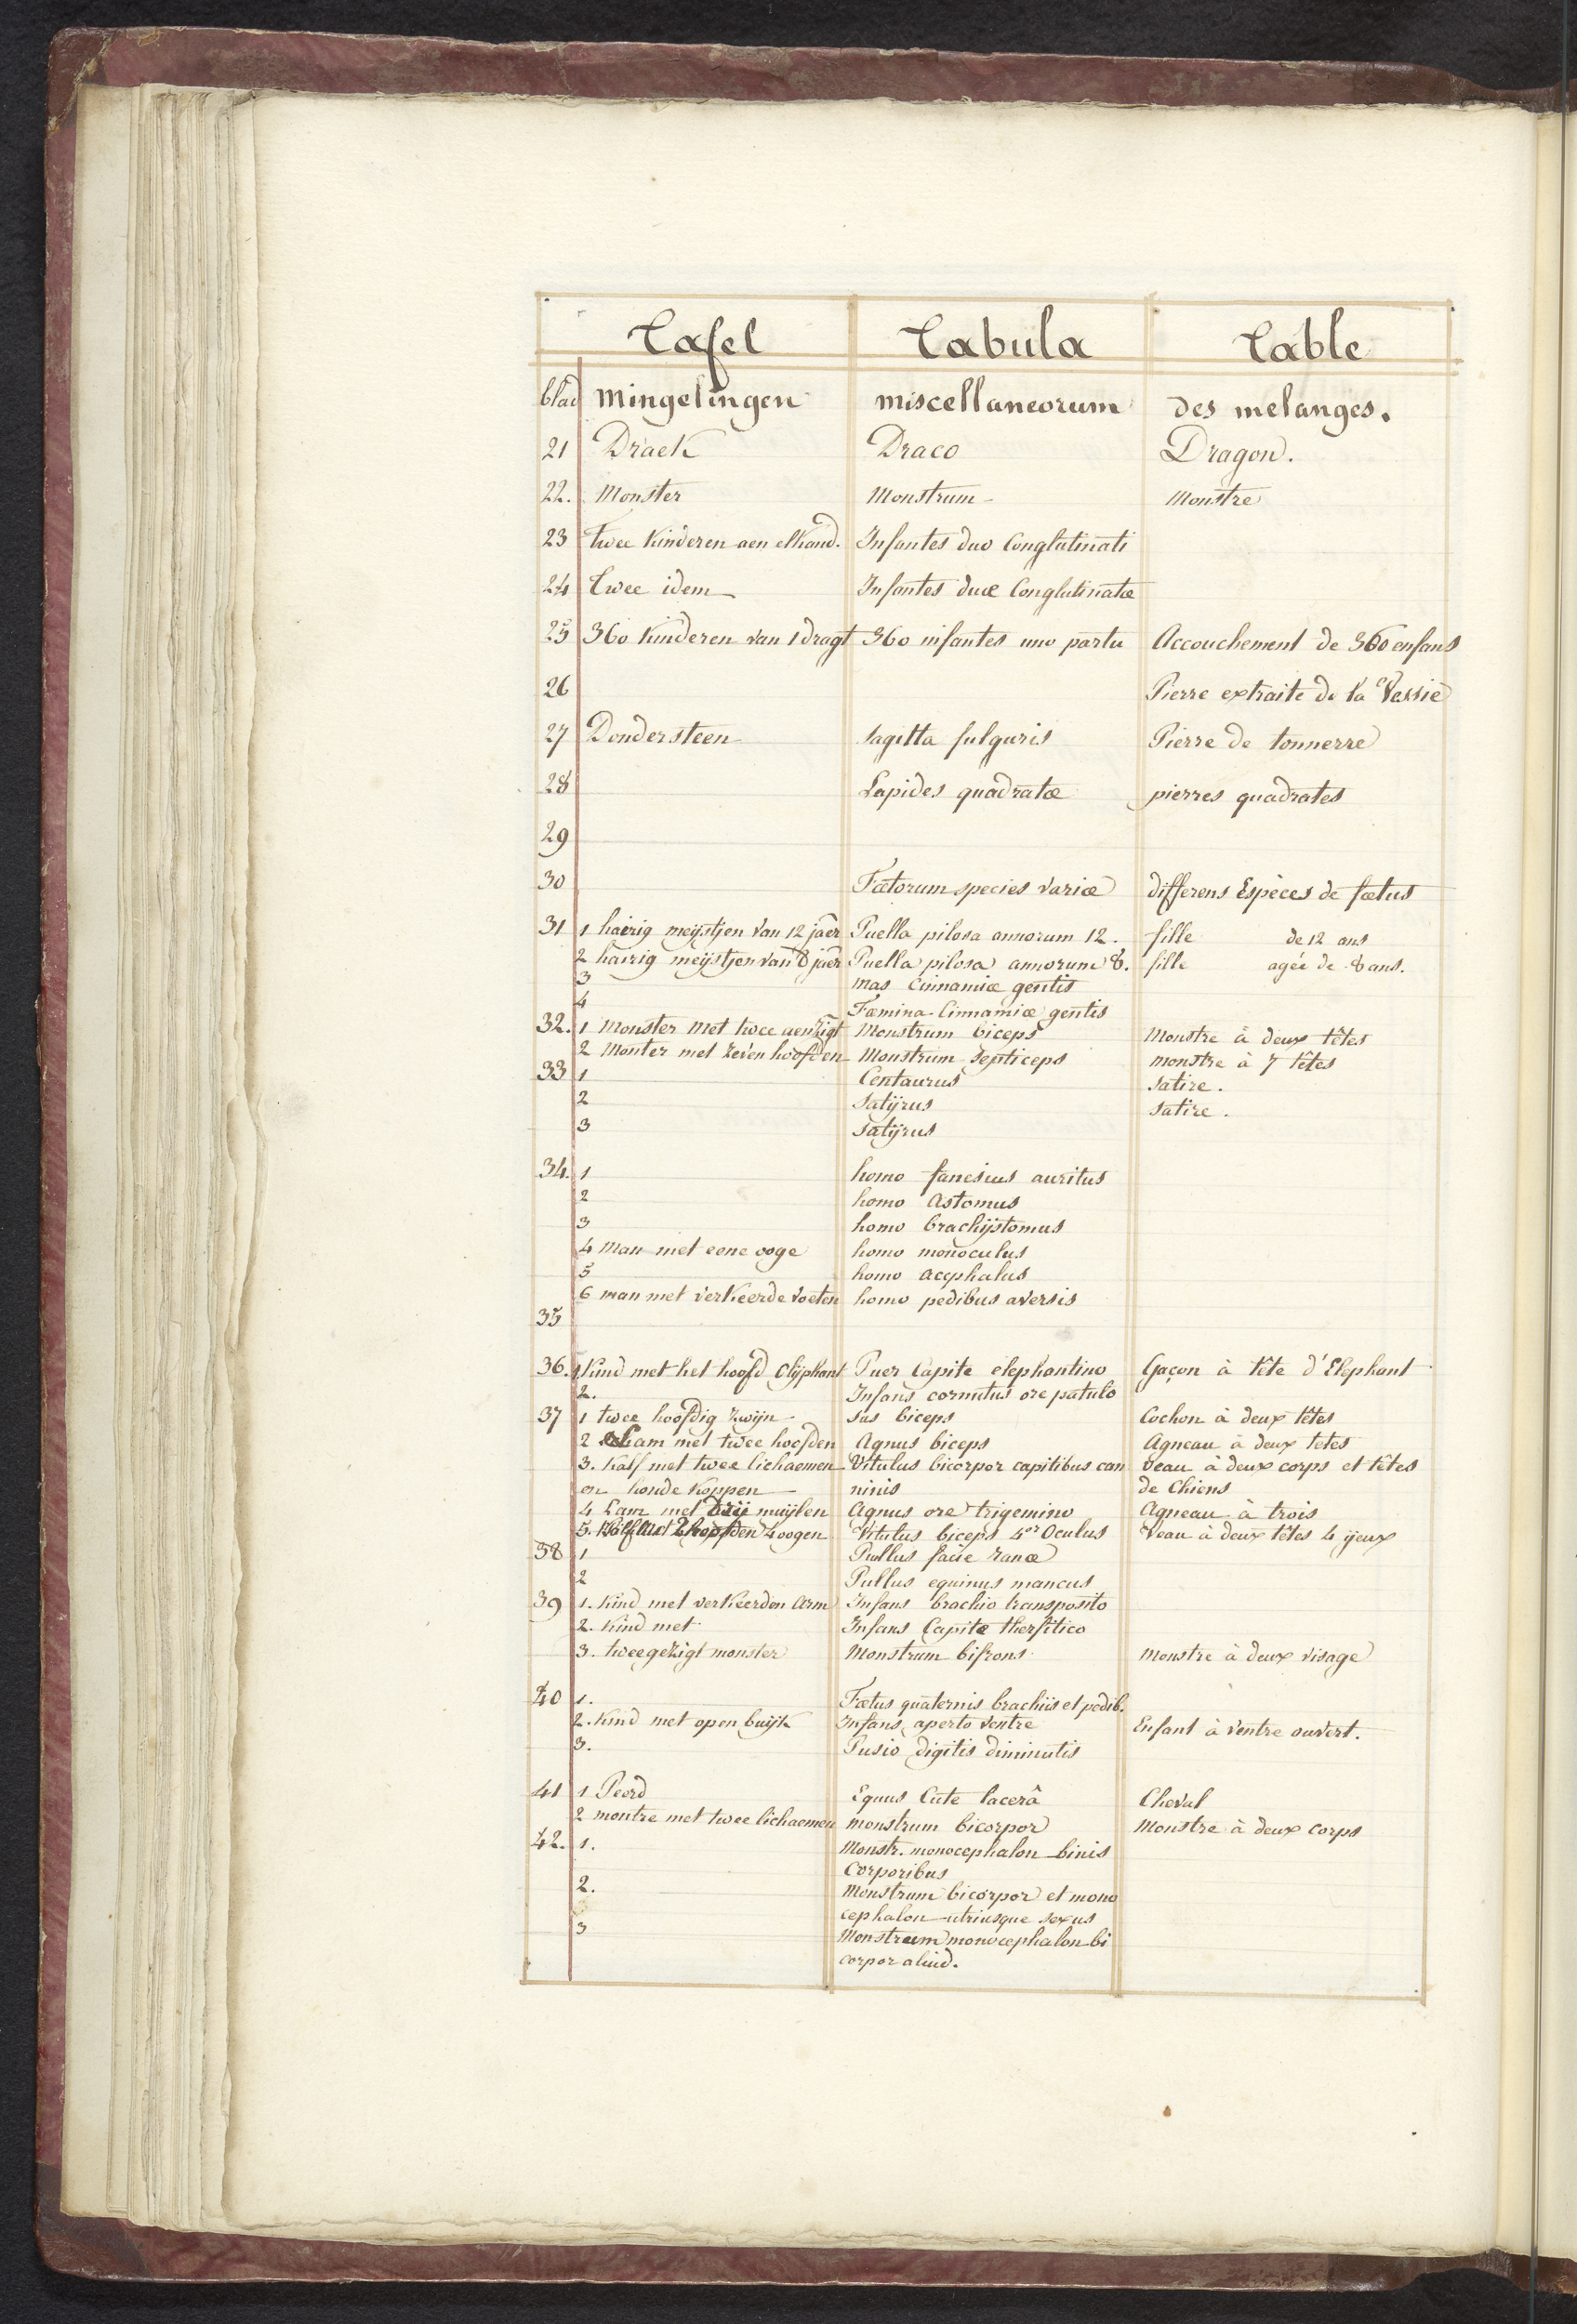 Tafel Tabula Table
blad Mingelingen miscellaneorum des melanges.
21 Draek Draco Dragon.
22. Monster Monstrum Monstre
23 Twee Kinderen aen elkand. Infantes duo Conglutinati
24 Twee idem Infantes duæ Conglutinatæ
25 360 Kinderen van 1 dragt 360 infantes uno partu Accouchement de 360 enfans
26 Pierre extraite de la Vessie
27 Dondersteen sagitta fulguris Pierre de tonnerre
28 Lapides quadratæ pierres quadrates
29
30 Fœtorum species variæ differens Espèces de fœtus
31 1 hairig meijstjen van 12 jaer Puella pilosa annorum 12. fille de 12 ans
2 hairig meijstjen van 8 jaer Puella pilosa annorum 8. fille agée de 8 ans.
3 mas Cinnamiæ gentis
4 Fœmina Cinnamiæ gentis
32. 1 Monster Met twee aenzigt Monstrum biceps Monstre à deux têtes
2 Monter met zeven hoofden Monstrum Septiceps monstre à 7 têtes
33 1 Centaurus satire.
2 Satijrus satire.
3 Satijrus
34. 1 homo fanesius auritus
2 homo Astomus
3 homo brachijstomus
4 Man met eene ooge homo monoculus
5 homo acephalus
6 man met verkeerde voeten homo pedibus aversis
35
36. 1 Kind met het hoofd Olijphant Puer Capite elephantino Gaçon à tête d'Elephant
2. Infans cornutus ore patulo
37 1 twee hoofdig zwijn sus biceps Cochon à deux têtes
2 Lam met twee hoofden Agnus biceps Agneau à deux tetes
3. Kalf met twee lichaemen Vitulus bicorpor capitibus can veau à deux corps et têtes
en honde Koppen ninis de Chiens
4 Lam met drij muijlen Agnus ore trigemino Agneau à trois
5. Kalf met 2 hoofden 4 oogen Vitulus biceps 4or Oculus Veau à deux têtes 4 ijeux
38 1 Pullus facie ranæ
2 Pullus equinus mancus
39 1. Kind met verkeerden Arm Infans brachio transposito
2. Kind met Infans Capite thersitico
3. tweegezigt monster Monstrum bifrons Monstre à deux visage
40 1. Fœtus quaternis brachiis et pedib.
2. Kind met open buijk Infans aperto ventre Enfant à ventre ouvert.
3. Pusio digitis diminutis
41 1 Peerd Equus Cute lacerâ Cheval
2 montre met twee lichaemen monstrum bicorpor Monstre à deux corps
42. 1. Monstr. monocephalon binis
Corporibus
2. Monstrum bicorpor et mono
cephalon utriusque sexus
3 Monstrum monocephalon bi
corpor aliud.